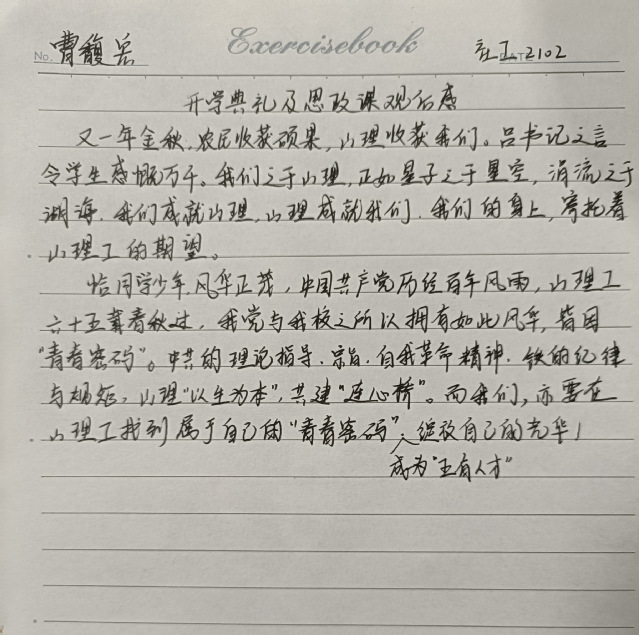 No. 曹馥岳 Exercisebook 社工2102
开学典礼及思政课观后感
又一年金秋,农民收获硕果,山理收获我们。吕书记之言
令学生感慨万千。我们之于山理,正如星子之于星空,涓流之于
湖海,我们成就山理,山理成就我们,我们的身上,寄托着
山理工的期望。
恰同学少年,风华正茂,中国共产党历经百年风雨,山理工
六十五载春秋过,我党与我校之所以拥有如此风华,皆因
“青春密码”。中共的理论指导、宗旨、自我革命精神、铁的纪律
与规矩,山理“以生为本”,共建“连心桥”。而我们,亦要在
山理工找到属于自己的“青春密码”,绽放自己的光华!
成为“五有人才”